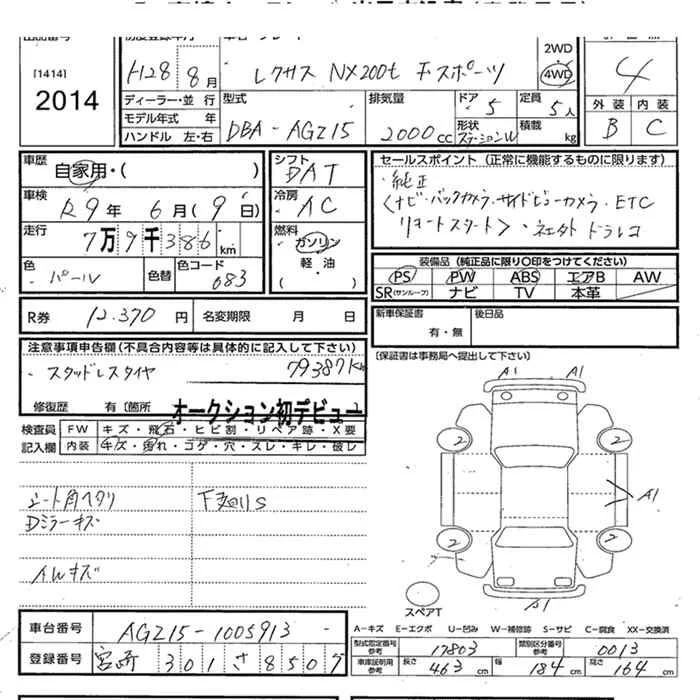 [1414]
2014
H28 8月
レクサス NX200t Fスポーツ
2WD
4WD
4
ディーラー・並 行
モデル年式 年
ハンドル 左・右
型式
DBA-AGZ15
排気量
2000cc
ドア 5
定員 5人
形状 ステーションW
積載 kg
外装 内装
B C
車歴
自家用・( )
車検
R9年 6月(9日)
走行
7万9千386km
色
パール
色替
色コード
083
シフト
DAT
冷房
AC
燃料
ガソリン
・
軽・油
( )
セールスポイント (正常に機能するものに限ります)
・純正
〈ナビ・バックカメラ・サイドビューカメラ・ETC
リモートスタート〉・社外ドラレコ
装備品 (純正品に限り〇印をつけてください)
PS PW ABS エアB AW
SR(サンルーフ) ナビ TV 本革
R券 12.370円 名変期限 月 日
新車保証書
有・無
後日品
(保証書は事務局へ提出して下さい)
注意事項申告欄(不具合内容等は具体的に記入して下さい)
・スタッドレスタイヤ 79387km
修復歴 有〔箇所 オークション初デビュー
検査員 FW キズ・飛石・ヒビ割・リペア跡・X要
記入欄 内装 キズ・汚れ・コゲ・穴・スレ・キレ・破し
シート角ヘタリ
下廻りS
Dミラーキズ
AWキズ
A1 A1
2 2
A1
2 2
スペアT
A1
車台番号 AGZ15-1005913
登録番号 宮崎 301 さ 8509
A-キズ E-エクボ U-凹み W-補修跡 S-サビ C-腐食 XX-交換済
型式指定番号 参考 17803 類別区分番号 参考 0013
車庫証明用 参考 長さ 463cm 幅 184cm 高さ 164cm